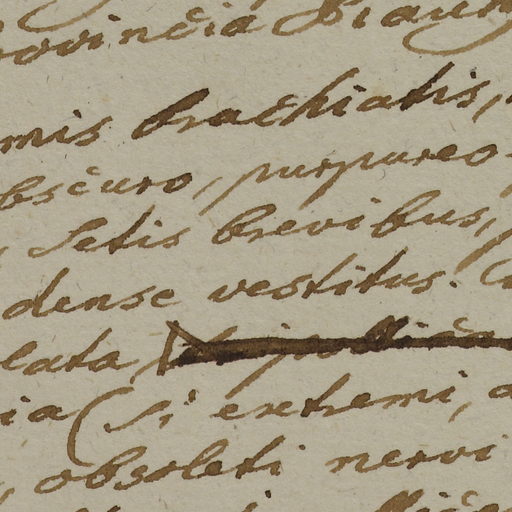 rovinčia Piauh
mis bračhiatis,
bsčuro, purpureo
, Setis brevibus,
dense vestitus.
lata,
ia (si extremi,
, obsoleti nervi